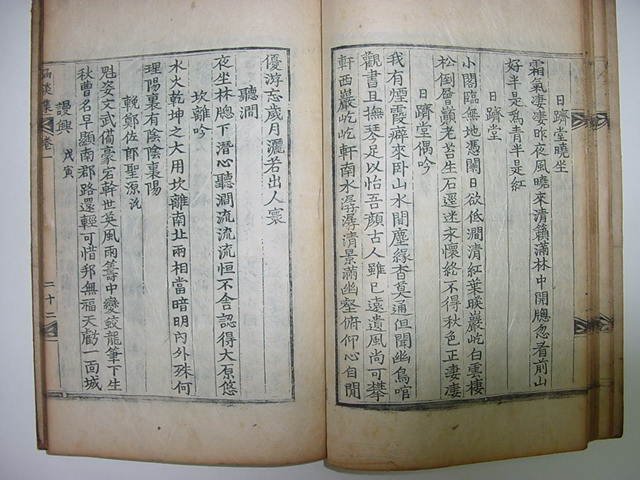 日躋堂曉坐
霜氣凄凄昨夜風曉來清籟滿林中開牕忽看前山
好半是爲靑半是紅
日躋堂
小閣臨無地憑闌日欲低澗清紅葉暎巖屹白雲棲
松倒層巓老苔生石逕迷來懷終不得秋色正凄凄
日躋堂偶吟
我有煙霞癖來卧山水間塵緣杳莫通但聞幽鳥喧
觀書且撫琴足以怡吾顔古人雖已遠遺風尚可攀
軒西巖屹屹軒南水潺潺清景滿幽壑俯仰心自閒
優游忘歲月灑若出人寰
聽澗
夜坐林牕下潛心聽澗流流流恒不舍認得大原悠
坎離吟
水火乾坤之大用坎離南北兩相當暗明內外殊何
理陽裏有陰陰裏陽
輓鄭佐郎聖源
魁姿文武備豪宏幹世英風雨籌中變蛟龍筆下生
秋曹名早顯南郡路還輕可惜邦無福天虧一面城
謾興 戊寅
集 卷一
二十二